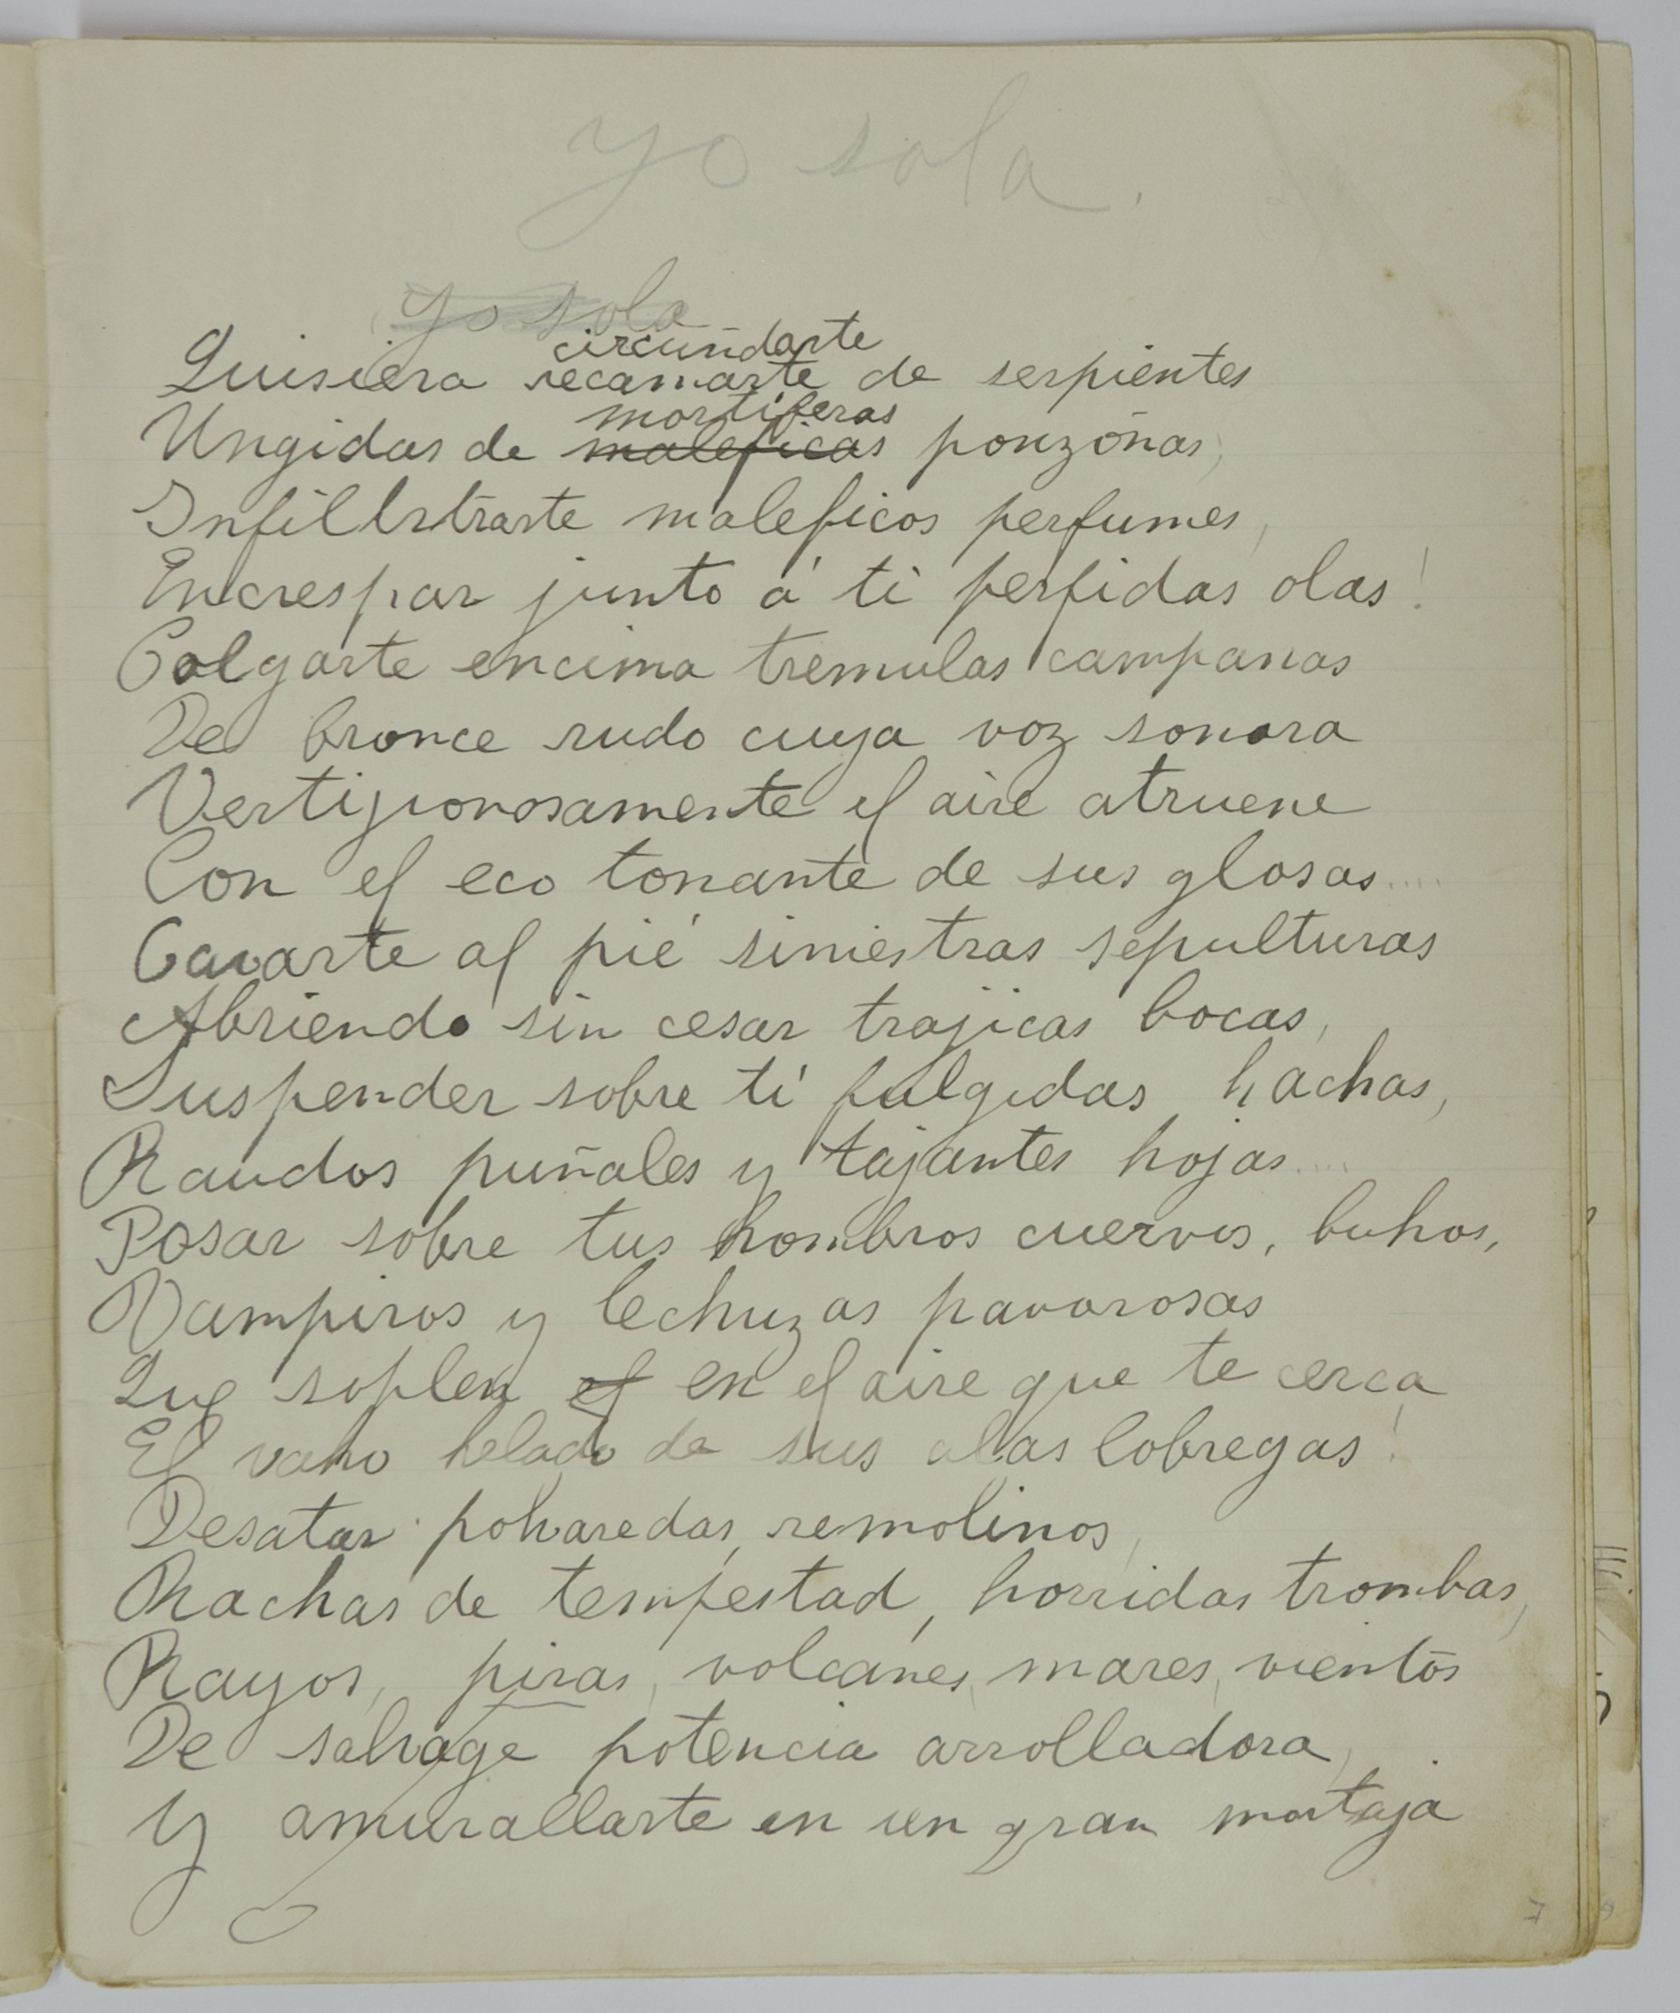 yo sola.
yo sola
circundarte
Quisiera recamarte de serpientes
mortiferas
Ungidas de maleficas ponzoñas,
Infilltrarte maleficos perfumes,
Encrespar junto á ti perfidas olas!
Colgarte encima tremulas campanas
De bronce rudo cuya voz sonora
Vertijinosamente el aire atruene
Con el eco tonante de sus glosas....
Cavarte al pié siniestras sepulturas
Abriendo sin cesar trajicas bocas,
Suspender sobre tí fulgidas hachas,
Raudos puñales y tajantes hojas....
Posar sobre tus hombros cuervos, buhos,
Vampiros y lechuzas pavorosas
Que soplen el en el aire que te cerca
El vaho helado de sus alas lobregas!
Desatar polvaredas, remolinos,
Rachas de tempestad, horridas trombas,
Rayos, piras, volcanes, mares, vientos
De salvage potencia arrolladora,
Y amurallarte en un gran mortaja
7